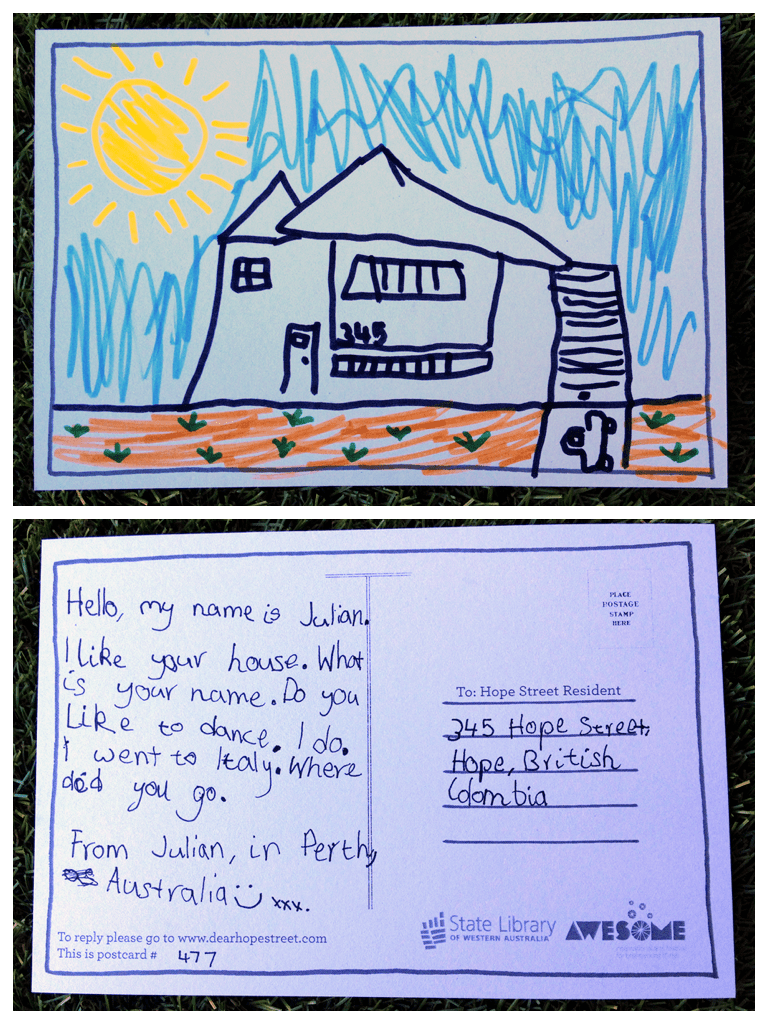 345
Hello, my name is Julian.
I like your house. What
is your name. Do you
Like to dance. I do.
I went to Italy. Where
did you go.
From Julian, in Perth,
Australia xxx.
To reply please go to www.dearhopestreet.com
This is postcard # 477
PLACE
POSTAGE
STAMP
HERE
To: Hope Street Resident
345 Hope Street,
Hope, British
Colombia
State Library
OF WESTERN AUSTRALIA
AWESOME